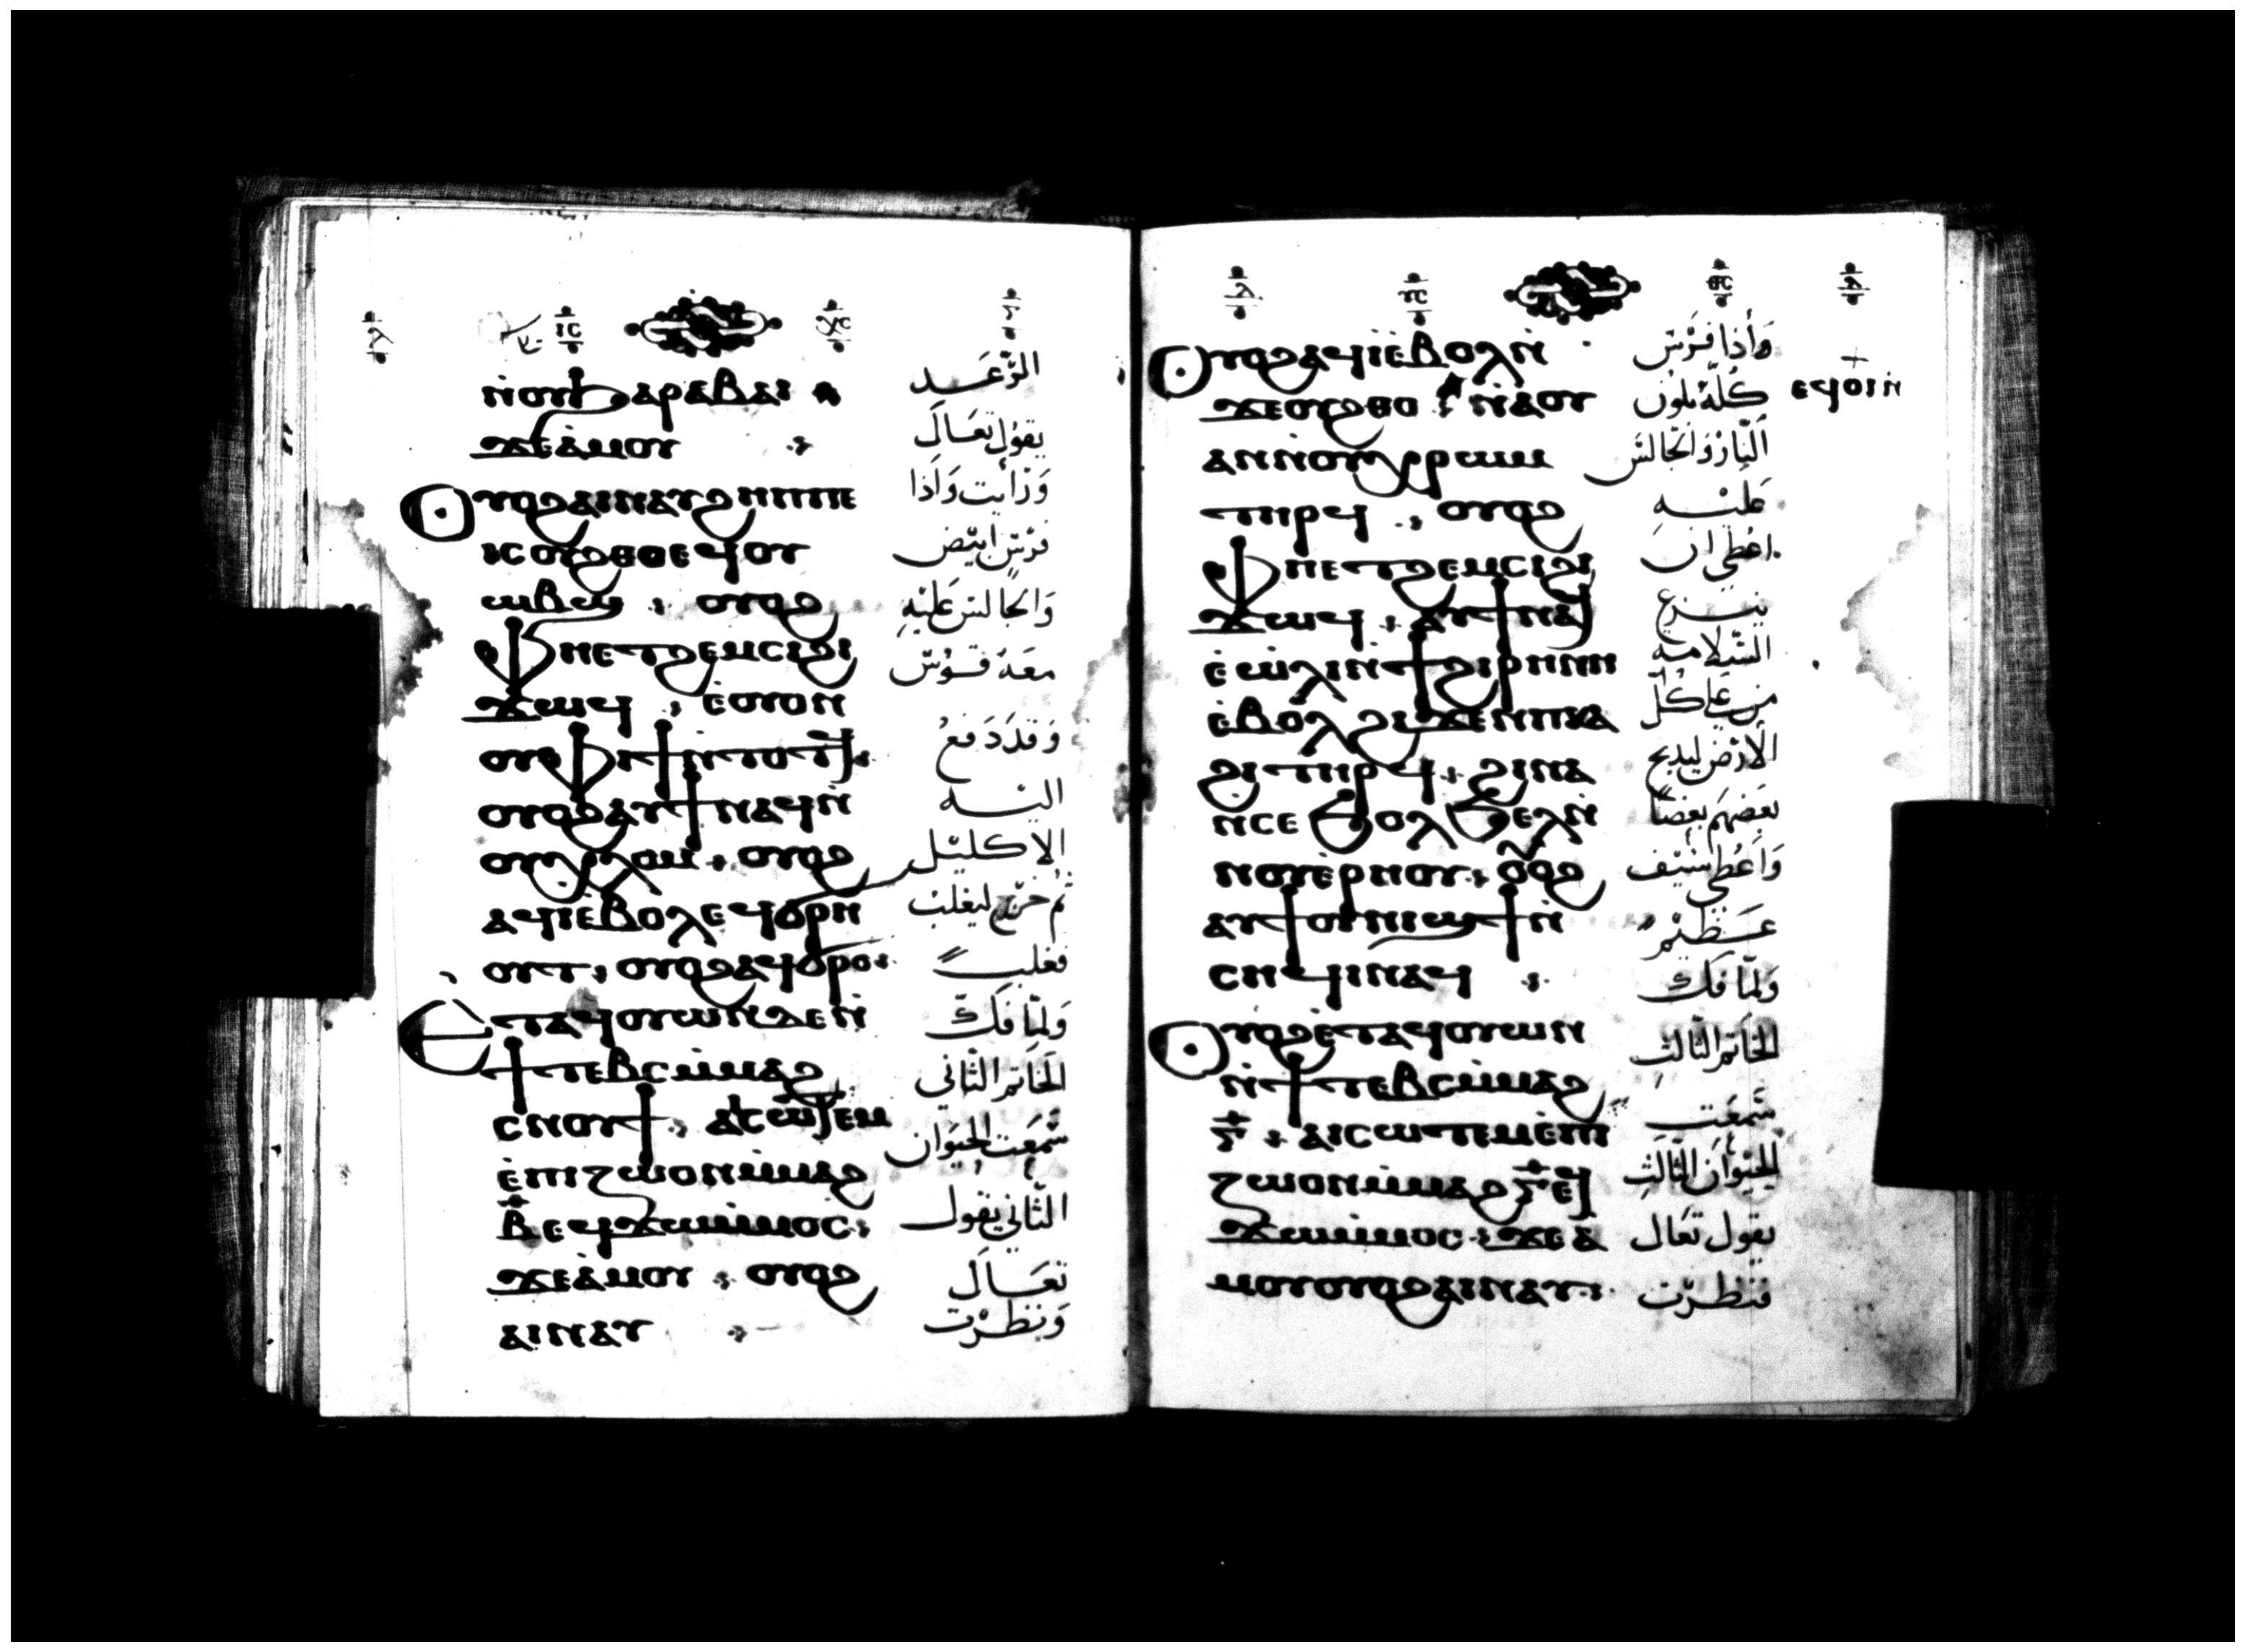 ⲓ̅ⲥ̅ ⲭ̅ⲥ̅
ⲛ̀ⲟⲩϧⲁⲣⲁⲃⲁⲓ
ϫⲉⲁ̀ⲙⲟⲩ ⁘
ⲟⲩⲟϩⲁⲓⲛⲁⲩϩⲏⲡⲡⲉ
ⲓⲥⲟⲩϩⲑⲟⲉϥⲟⲩ
ⲱⲃϣ : ⲟⲩⲟϩ
ⲫⲏⲉⲧϩⲉⲙⲥⲓϩⲓ
ϫⲱϥ : ⲉ̀ⲟⲩⲟⲛ
ⲟⲩⲫⲓϯⲛ̀ⲧⲟⲧϥ :
ⲟⲩⲟϩⲁⲩϯⲛⲁϥⲛ̀
ⲟⲩⲭⲗⲟⲙ : ⲟⲩⲟϩ
ⲁϥⲓ̀ⲉ̀ⲃⲟⲗⲉϥϭⲣⲏ
ⲟⲩⲧ : ⲟⲩⲟϩⲁϥϭⲣⲟ :
ⲉ̀ⲧⲁϥⲟⲩⲱⲛⲇⲉⲛ̀
ϯⲧⲉⲃⲥⲙ̀ⲙⲁϩ
ⲥⲛⲟⲩϯ : ⲁⲓⲥⲱⲧⲉⲙ
ⲉ̀ⲡⲓⲍⲱⲟⲛⲙ̀ⲙⲁϩ
ⲃ̅ ⲉϥϫⲱⲙ̀ⲙⲟⲥ :
ϫⲉⲁ̀ⲙⲟⲩ : ⲟⲩⲟϩ
ⲁⲓⲛⲁⲩ ⁘
الرّعَد
يقوُل تعَالَ
وَرَأيت وَاذا
فرَسٌ ابيَض
وَالجالسَ عَليْهِ
معَهُ قَوسٌ
وَقد دَفعُ
اليْه
الاكليْل
ثُم خرَج ليغلبْ
فغلبَ
وَلمّا فَكّ
الخاتم الثّاني
سَمعَت الحيَوَان
الثّاني يقول
تعَالَ
وَنظرْت
ⲩ̅ⲥ̅ ⲑ̅ⲥ̅
ⲟⲩⲟϩⲁϥⲓ̀ⲉ̀ⲃⲟⲗⲛ̀
ϫⲉⲟⲩϩⲑⲟ : ⲛ̀ⲁⲟⲩ
ⲁⲛⲛ̀ⲟⲩⲭⲣⲱⲙ
ⲧⲏⲣϥ : ⲟⲩⲟϩ
ⲫⲏⲉⲧϩⲉⲙⲥⲓϩⲓ
ϫⲱϥ : ⲁⲩϯⲛⲁϥ
ⲉ̀ⲱ̀ⲗⲓⲛ̀ϯϩⲓⲣⲏⲛⲏ
ⲉ̀ⲃⲟⲗϩⲓϫⲉⲛⲡⲕⲁ
ϩⲓⲧⲏⲣϥ : ϩⲓⲛⲁ
ⲛⲥⲉϧⲟⲗϧⲉⲗⲛ̀
ⲛⲟⲩⲉ̀ⲣⲏⲟⲩ : ⲟⲩⲟϩ
ⲁⲩϯⲟⲩⲛⲓϣϯⲛ̀
ⲥⲏϥⲓⲛⲁϥ ⁘
ⲟⲩⲟϩⲉ̀ⲧⲁϥⲟⲩⲱⲛ
ⲛ̀ϯⲧⲉⲃⲥⲙ̀ⲙⲁϩ
ⲅ̅ : ⲁⲓⲥⲱⲧⲉⲙⲉ̀ⲡⲓ
ⲍⲱⲟⲛⲙ̀ⲙⲁϩⲅ̅ⲉϥ
ϫⲱⲙ̀ⲙⲟⲥ : ϫⲉⲁ̀
ⲙⲟⲩⲟⲩⲟϩⲁⲓⲛⲁⲩ :
وَأذا فَرَسٌ
كُلّهُ بلوُن
النّار وَالجالسَ
عَليْهِ
اعُطىَ ان
ينزع
السّلامه
من عَلى كُلّ
الارْض ليدبح
بعَضهَم بعضاً
وَاعُطىَ سَيْف
عَظيْم
وَلمّا فكّ
الخاتم الثّالثِ
سَمعَت
الحيْوَان الثّالثِ
يقول تعَال
فنظرْت
ⲉϥⲟⲓⲛ̀